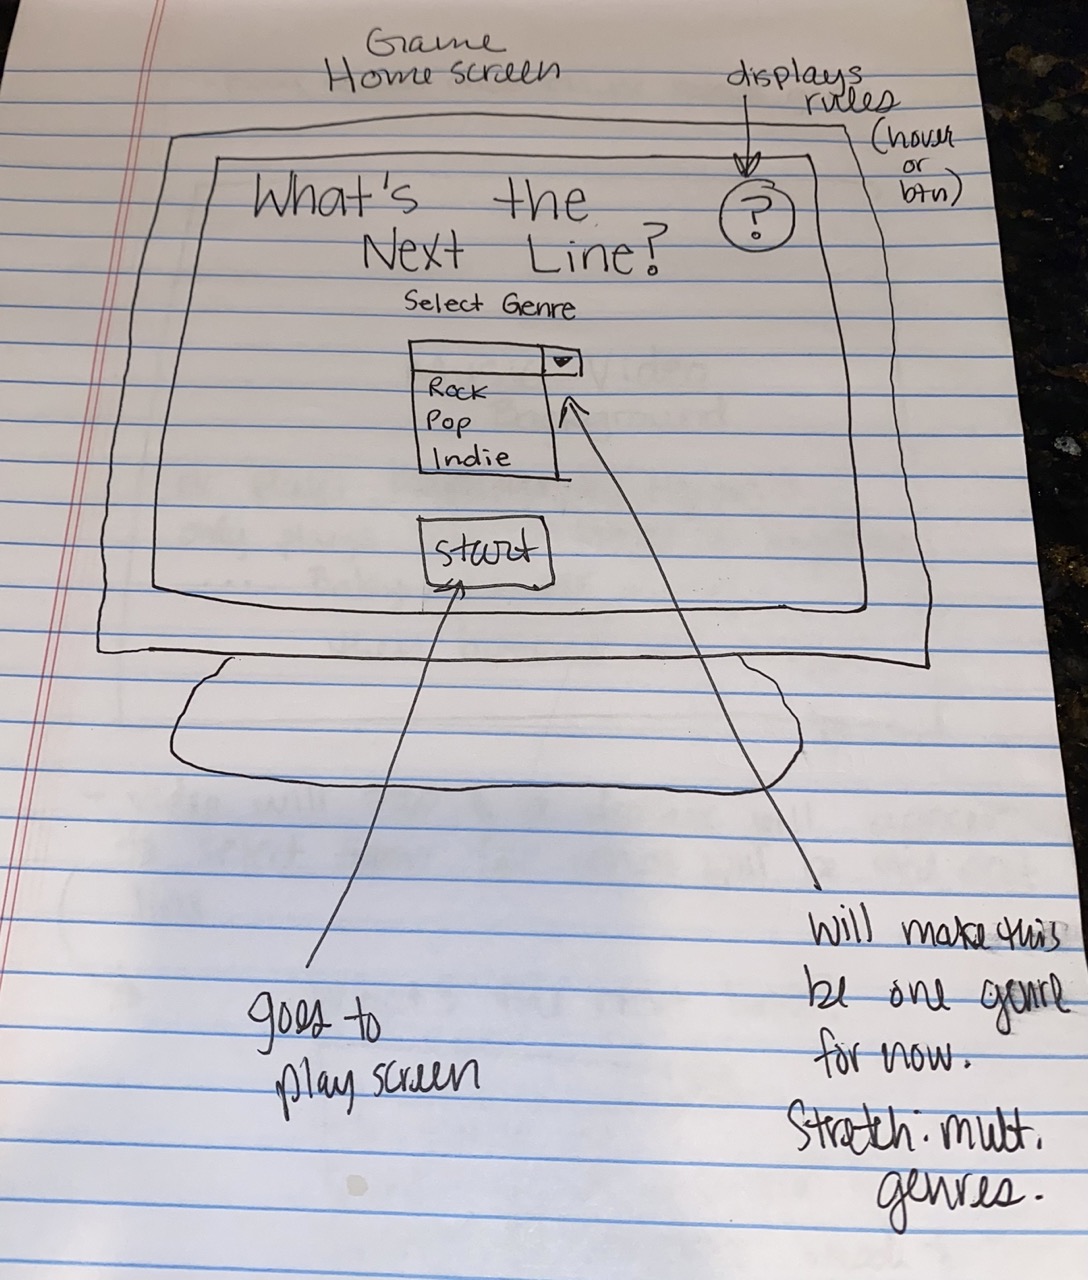 Game
Home screen
displays
rules
(hover
or
btn)
What's the
Next Line?
?
Select Genre
Rock
Pop
Indie
start
goes to
play screen
Will make this
be one genre
for now.
Stretch: mult.
genres.